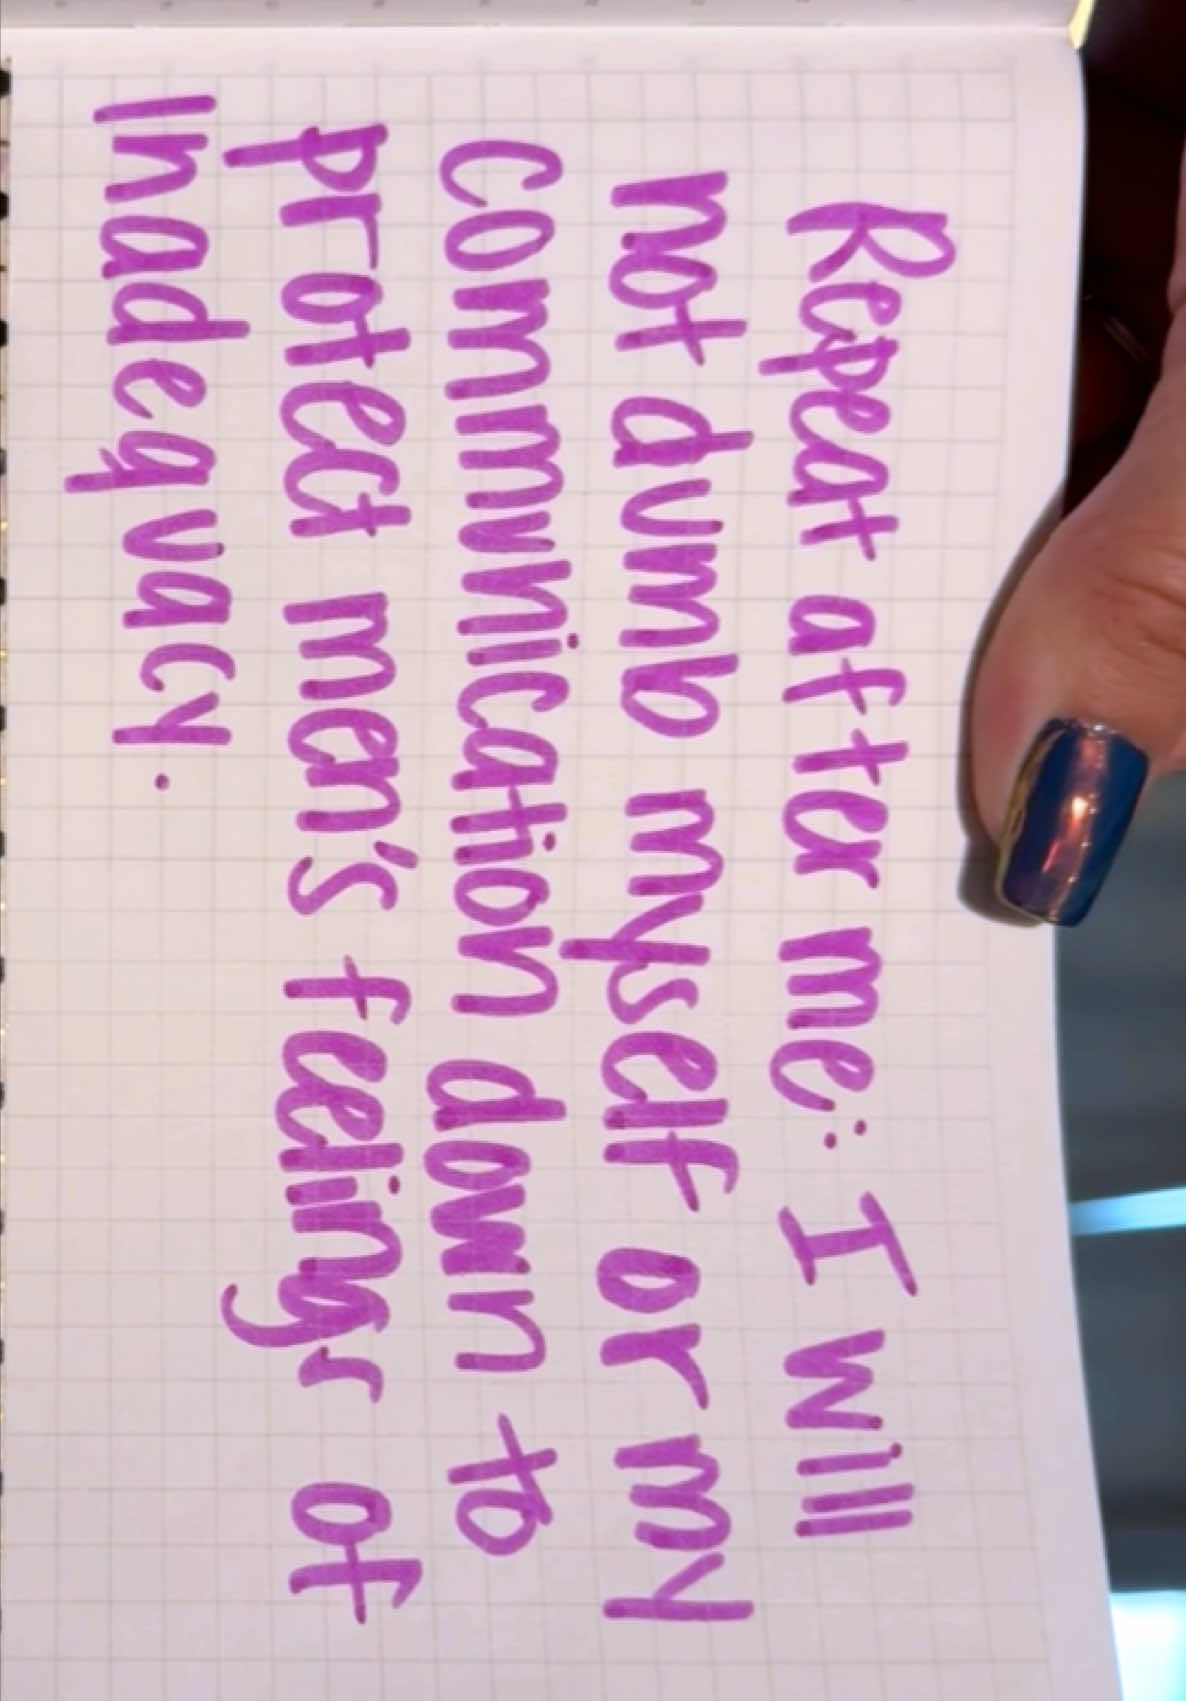 Repeat after me: I will
not dumb myself or my
communication down to
protect men's feelings of
inadequacy.